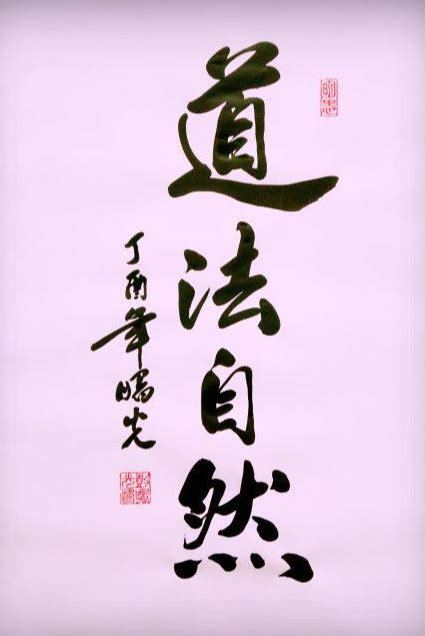 道法自然
丁酉年曙光